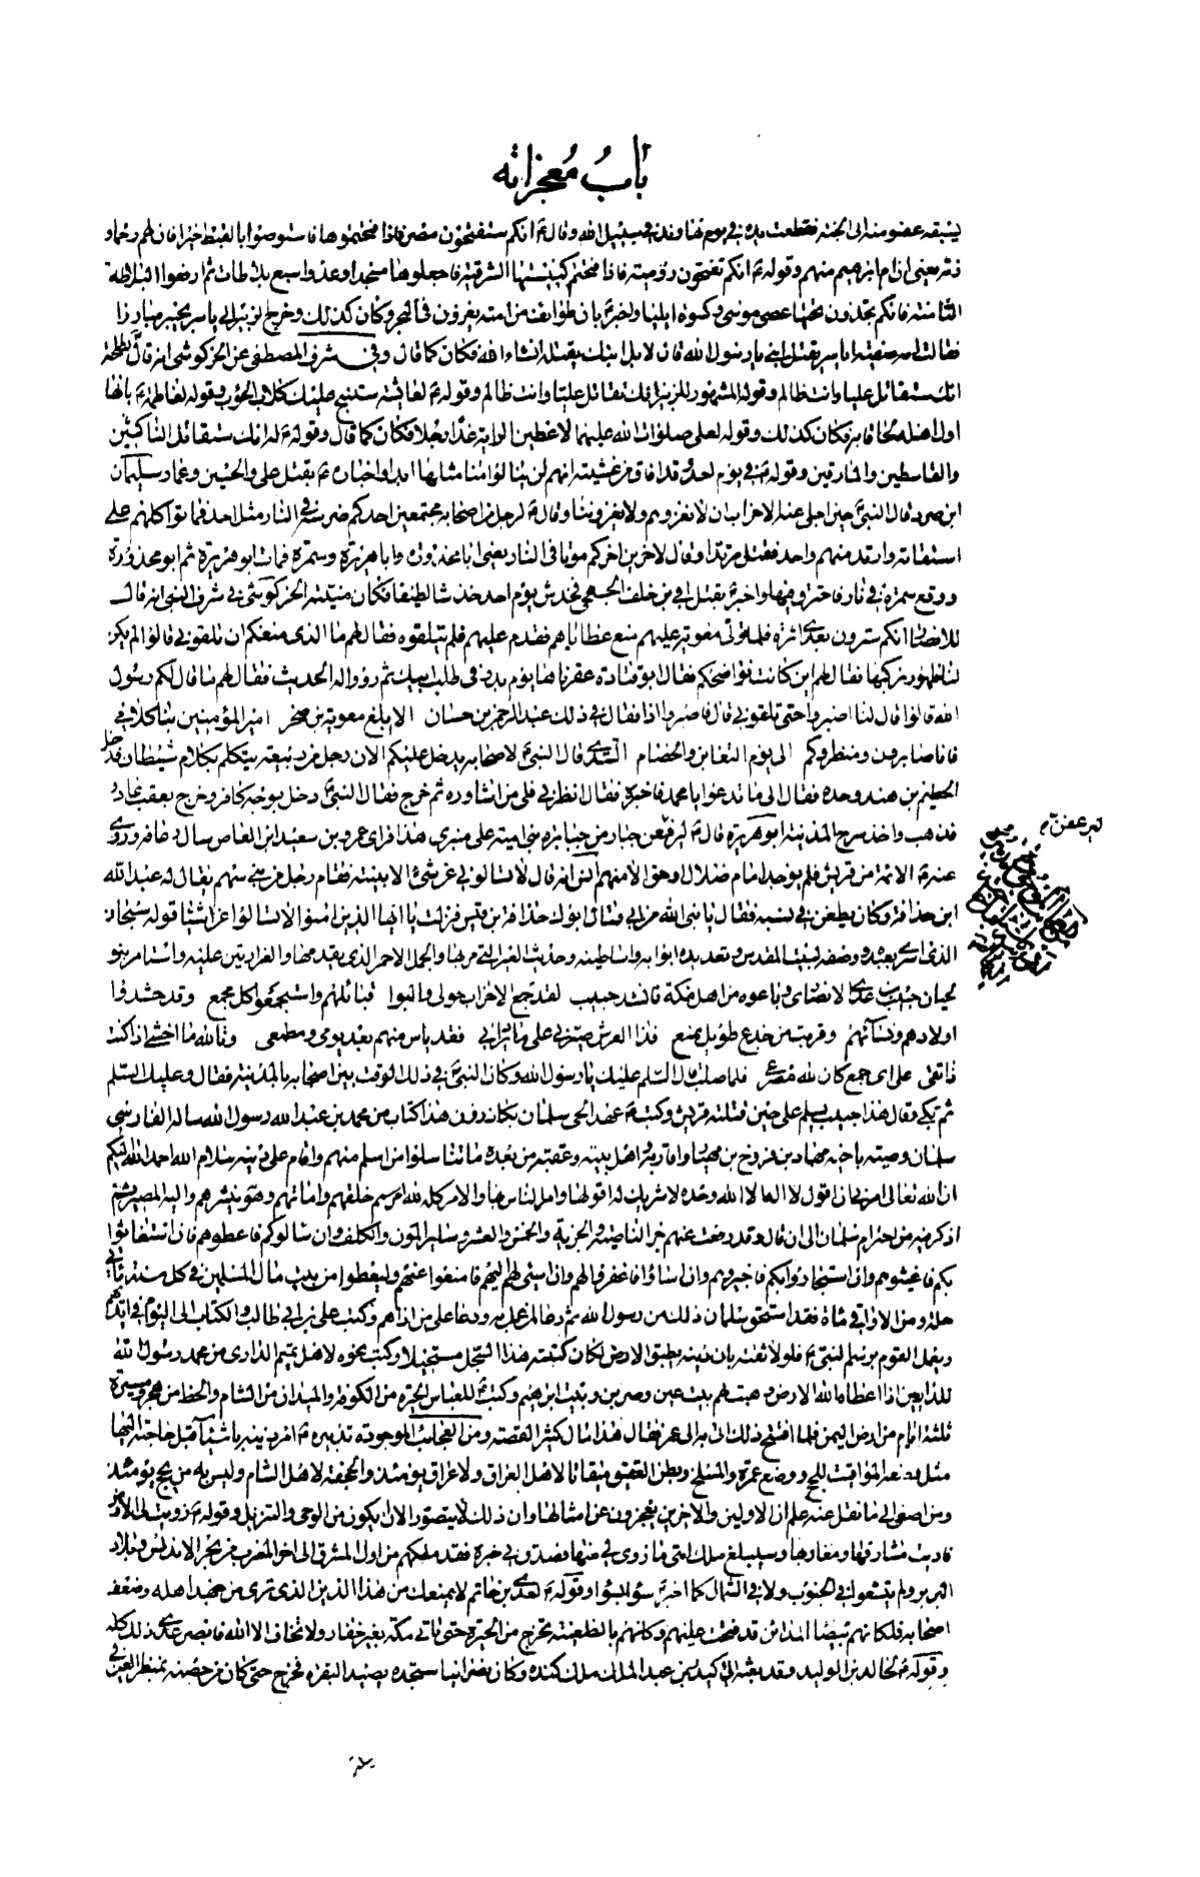 باب معجزاته
يسبقه عضو منه الى الجنة فقطعت يده في يوم نهاوند في سبيل الله وقال ع انكم ستفتحون مصر فاذا فتحتموها فاستوصوا بالقبط خيرا فان لهم رحما و
ذمة يعني ان ام ابرهيم منهم وقوله ع انكم تفتحون رومية فاذا فتحتم كنيستها الشرقية فاجعلوها مسجدا وعدوا سبع بلاطات ثم ارفعوا البلاطة
الثامنة فانكم تجدون تحتها عصى موسى وكسوة ايليا واخبر ع بان طوايف من امته يغزون في البحر وكان كذلك وخرج الزبير الى ياسر بخيبر مبارزا
فقالت امه صفية اياسر يقتل ابني يا رسول الله قال لا بل ابنك يقتله انشاء الله فكان كما قال وفي شرف المصطفى عن الخركوشي انه قال لطلحة
انك ستقاتل عليا وانت ظالم وقوله المشهور للزبير انك تقاتل عليا وانت ظالم وقوله ع لعائشة ستنبح عليك كلاب الحوأب وقوله لفاطمة ع بانها
اول اهله لحاقا به فكان كذلك وقوله لعلي صلوات الله عليهما لاعطين الراية غدا رجلا فكان كما قال وقوله ع له انك ستقاتل الناكثين
والقاسطين والمارقين وقوله ع في يوم احد وقد افاق من غشيته انهم لن ينالوا منا مثلها ابدا واخباره ع بقتل علي والحسين وعمار سليمان
ابن صرد قال النبي حين اجلى عنه الاحزاب الان نغزوهم ولا يغزوننا وقال ع لرجل من اصحابه مجتمعين احدكم ضرسه في النار مثل احد فماتوا كلهم على
استقامة وارتد منهم واحد فقتل مرتدا وقال لاخرين اخركم موتا في النار يعني ابا محذورة وابا هريرة وسمرة فمات ابو هريرة ثم ابو محذورة
ووقع سمرة في نار فاحترق فيها واخبر ع بقتل ابي بن خلف الجمحي فخدش يوم احد خدشا لطيفا فكان منيته الخركوشي في شرف النبي انه قال
للانصار انكم سترون بعدي اثرة فلما ولى معوية عليهم منع عطاياهم فقدم عليهم فلم يتلقوه فقال لهم ما الذي منعكم ان تلقوني قالوا لم يكن
لنا ظهور نركبها فقال لهم اين كانت نواضحكم فقال ابو قتادة عقرناها يوم بدر في طلب ابيك ثم رووا له الحديث فقال لهم ما قال لكم رسول
الله قالوا قال لنا اصبروا حتى تلقوني قال فاصبروا اذا فقال في ذلك عبد الرحمن بن حسان الا ابلغ معوية بن صخر امير المؤمنين بنا كلامي
فانا صابرون ومنظروكم الى يوم التغابن والخصام السدي قال النبي لاصحابه يدخل عليكم الان رجل من ربيعة يتكلم بكلام شيطان فدخل
الحطيم بن هند وحده فقال الى ما تدعوا يا محمد فاخبره فقال انظرني فلي من اشاوره ثم خرج فقال النبي دخل بوجه كافر وخرج بعقب غادر
فذهب واخذ سرح المدينة ابو هريرة قال ع ليرعفن جبار من جبابرة بني امية على منبري هذا فراى عمرو بن سعيد ابن العاص سال رعافه وروي
عنه ع الائمة من قريش فلم يوجد امام ضلال او حق الا منهم انس انه قال لا تسالوني عن شئ الا بينته فقام رجل من بني سهم يقال له عبد الله
ابن حذافة وكان يطعن في نسبه فقال يا نبي الله من ابي فقال ابوك حذافة بن قيس فنزلت يا ايها الذين امنوا لا تسالوا عن اشيا قوله سبحان
الذي اسرى بعبده وصفه لبيت المقدس وتعديده ابوابه واساطينه وحديث العير التي مر بها والجمل الاحمر الذي يقدمها والغرارتين عليه واستاسر بنو
لحيان خبيب بن عدي الانصاري وباعوه من اهل مكة فانشد خبيب لقد جمع الاحزاب حولي والبوا قبائلهم واستجمعوا كل مجمع وقد حشدوا
اولادهم ونساءهم وقربت من جذع طويل ممنع فذا العرش صبرني على ما يراد بي فقد ياس منهم بعد يومي ومطمعي وتالله ما اخشى اذا كنت
ذا تقى على اي جمع كان لله مصرعي فلما صلب قال السلم عليك يا رسول الله وكان النبي في ذلك الوقت بين اصحابه بالمدينة فقال وعليك السلم
ثم بكى وقال هذا خبيب يسلم علي حين قتلته قريش وكتب ع عهدا لحي سلمان بكازرون هذا كتاب من محمد بن عبد الله رسول الله ساله الفارسي
سلمان وصيته باخيه مهاد بن فروخ بن مهيار واقاربه اهل بيته وعقبه من بعده ما تناسلوا من اسلم منهم واقام على دينه سلام الله احمد الله اليكم
ان الله تعالى امرني ان اقول لا اله الا الله وحده لا شريك له اقولها وامر الناس بها والامر كله لله خلقهم واماتهم وهو ينشرهم واليه المصير ثم
ذكر فيه من احترام سلمان الى ان قال وقد رفعت عنهم جز الناصية والجزية والخمس والعشر وساير المؤن والكلف وان سالوكم فاعطوهم فان استغاثوا
بكم فاغيثوهم وان استجاروا بكم فاجيروهم وان اساؤا فاغفروا لهم وان اسئ اليهم فامنعوا عنهم وليعطوا من بيت مال المسلمين في كل سنة مأتي
حلة ومن الاواقي مأة فقد استحق سلمان ذلك من رسول الله ثم دعا لمن عمل به ودعا على من اذاهم وكتب علي بن ابي طالب والكتاب الى اليوم في ايديهم
ويعمل القوم برسم النبي ع فلولا ثقته بان دينه يطبق الارض لكان كتبه هذا السجل مستحيلا وكتب نحوه لاهل تميم الداري من محمد رسول الله
للداريين اذا اعطاه الله الارض وهبت لهم بيت عين وصرين وبيت ابرهيم وكتب ع للعباس الحيرة من الكوفة والميدان من الشام والخط من هجر ومسيرة
ثلثة ايام من ارض اليمن فلما افتتح ذلك اتى به الى عمر فقال هذا مال كثير القصة ومن العجائب الموجودة تدبيره ع امر دينه باشياء قبل حاجته اليها
مثل وضعه المواقيت للحج ووضع عمرة والمسلخ وبطن العقيق ميقاتا لاهل العراق ولا عراق يومئذ والجحفة لاهل الشام وليس به من يحج يومئذ
ومن اصغى الى ما نقل عنه علم ان الاولين والاخرين يعجزون عن امثالها وان ذلك لا يتصور الا ان يكون من الوحي والتنزيل وقوله ع زويت لي الارض
فاريت مشارقها ومغاربها وسيبلغ ملك امتي ما زوى لي منها فصدق في خبره فقد ملكهم من اول المشرق الى اخر المغرب من بحر الاندلس وبلاد
البربر ولم يتسعوا في الجنوب ولا في الشمال كما اخبر ع سواء بسواء وقوله ع لعدي بن حاتم لا يمنعك من هذا الدين الذي ترى من جهد اهله وضعف
اصحابه فلكانهم ببيضاء المداين قد فتحت عليهم وكانهم بالظعينة تخرج من الحيرة حتى تاتي مكة بغير خفار ولا تخاف الا الله فابصر عدي ذلك كله
وقوله ع لخالد بن الوليد وقد بعثه الى اكيدر بن عبد الملك ملك كندة وكان نصرانيا ستجده يصيد البقرة فخرج حتى كان من حصنه بمنظر العين في
ليلة